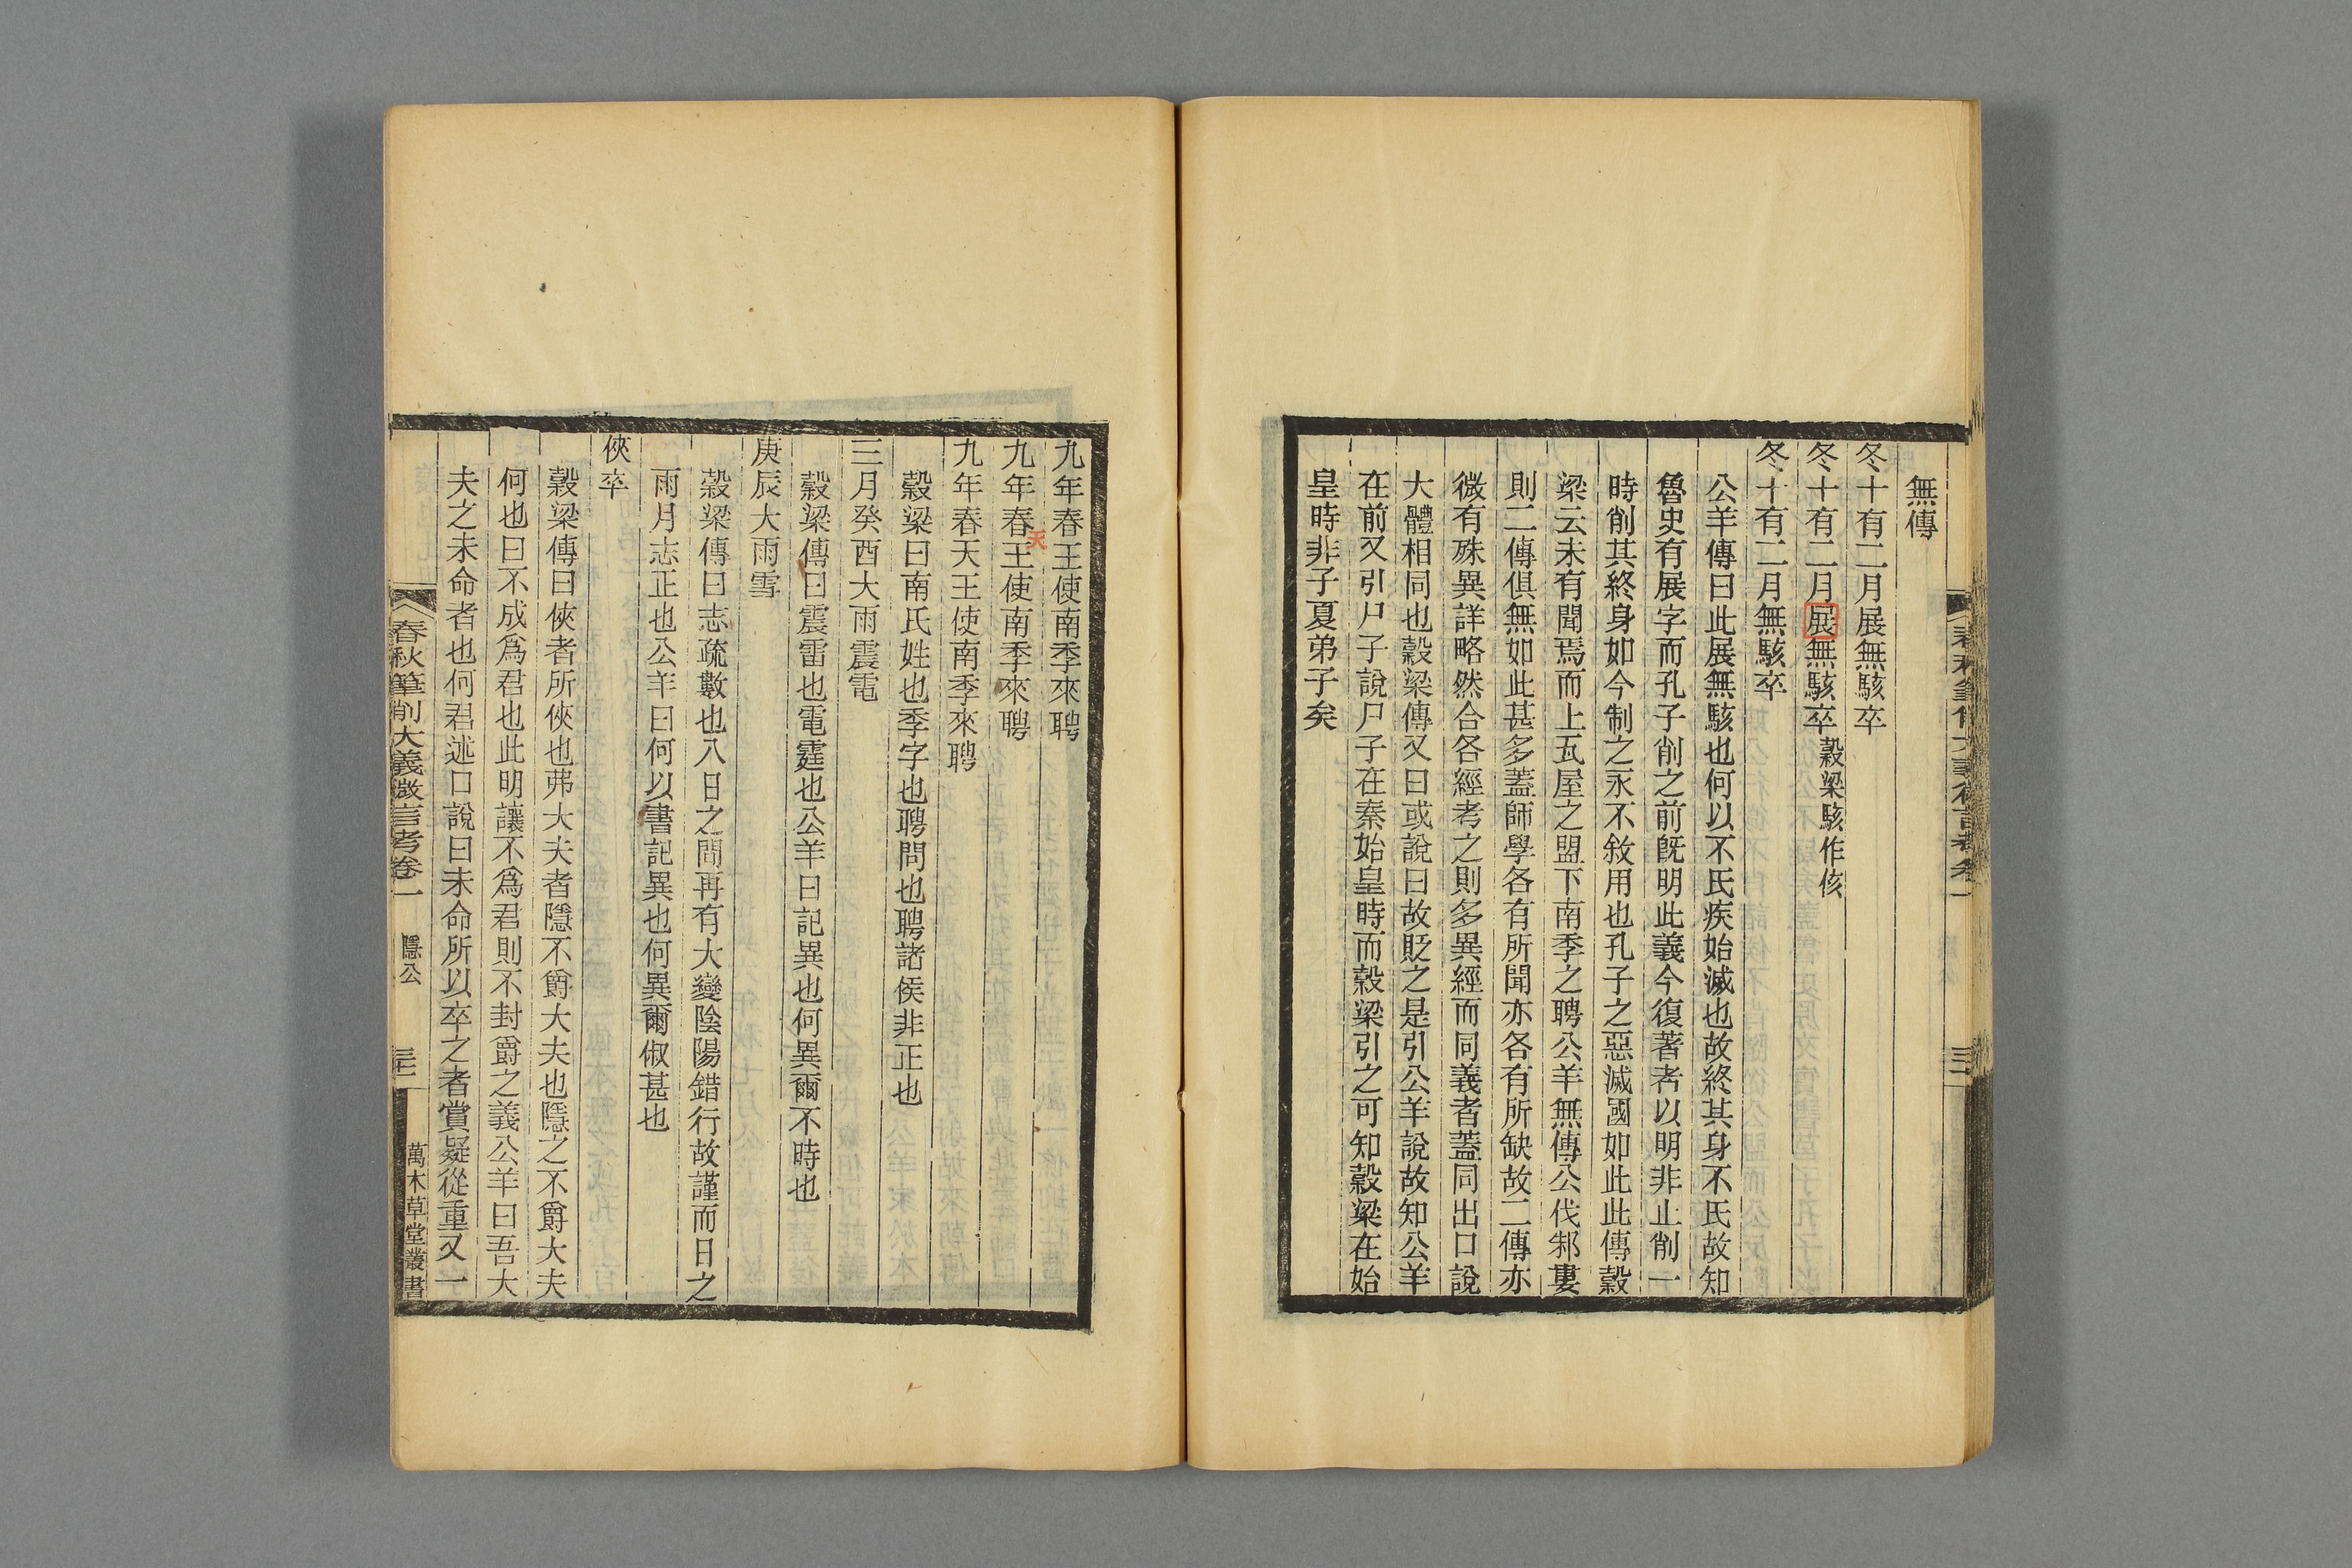 無傳
冬十有二月展無駭卒
冬十有二月展無駭卒穀梁駭作侅
冬十有二月無駭卒
公羊傳曰此展無駭也何以不氏疾始滅也故終其身不氏故知
魯史有展字而孔子削之前旣明此義今復著者以明非止削一
時削其終身如今制之永不敘用也孔子之惡滅國如此此傳穀
梁云未有聞焉而上瓦屋之盟下南季之聘公羊無傳公伐邾婁
則二傳俱無如此甚多蓋師學各有所聞亦各有所缺故二傳亦
微有殊異詳略然合各經考之則多異經而同義者蓋同出口說
大體相同也穀梁傳又曰或說曰故貶之是引公羊說故知公羊
在前又引尸子說尸子在秦始皇時而穀梁引之可知穀梁在始
皇時非子夏弟子矣
九年春王使南季來聘
九年春天王使南季來聘
九年春天王使南季來聘
穀梁曰南氏姓也季字也聘問也聘諸侯非正也
三月癸酉大雨震電
穀梁傳曰震雷也電霆也公羊曰記異也何異爾不時也
庚辰大雨雪
穀梁傳曰志疏數也八日之間再有大變陰陽錯行故謹而日之
雨月志正也公羊曰何以書記異也何異爾俶甚也
俠卒
穀梁傳曰俠者所俠也弗大夫者隱不爵大夫也隱之不爵大夫
何也曰不成爲君也此明讓不爲君則不封爵之義公羊曰吾大
夫之未命者也何君述口說曰未命所以卒之者賞疑從重又一
春秋筆削大義微言考卷一 隱公 三十二 萬木草堂叢書